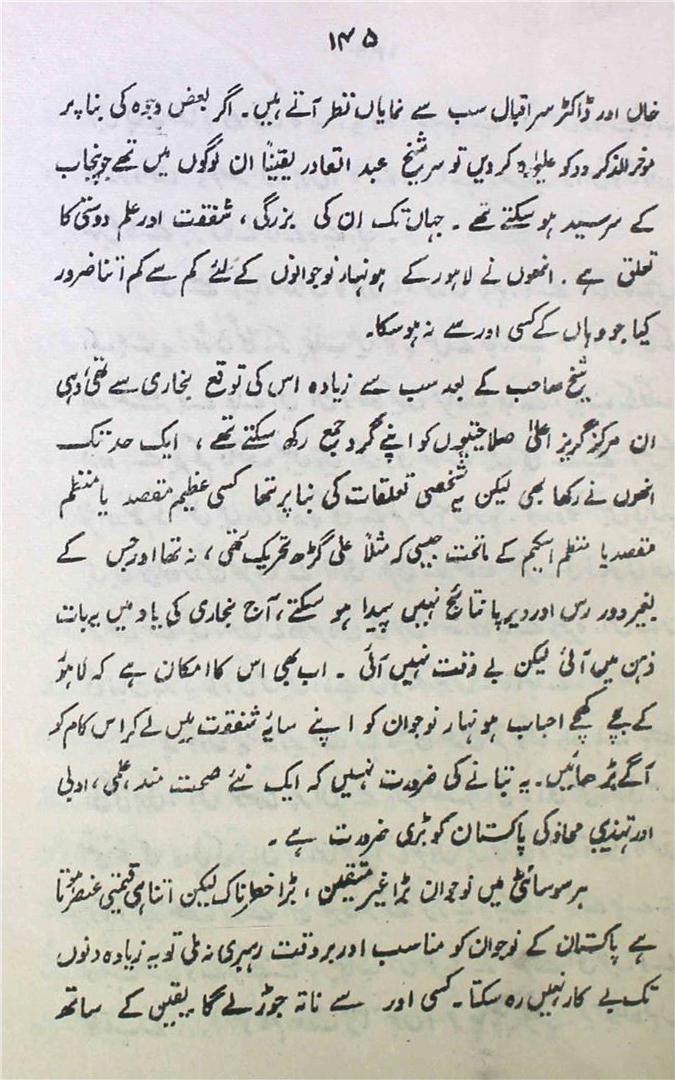 ۱۴۵
خاں اور ڈاکٹر سر اقبال سب سے نمایاں نظر آتے ہیں۔ اگر بعض وجوہ کی بنا پر
موخر الذکر دو کو علیحدہ کر دیں تو سر شیخ عبد القادر یقیناً ان لوگوں میں تھے جو پنجاب
کے سر سید ہو سکتے تھے ۔ جہاں تک ان کی بزرگی ، شفقت اور علم دوستی کا
تعلق ہے ۔ انھوں نے لاہور کے ہونہار نوجوانوں کے لئے کم سے کم اتنا ضرور
کیا جو وہاں کے کسی اور سے نہ ہو سکا۔
شیخ صاحب کے بعد سب سے زیادہ اس کی توقع بخاری سے تھی وہی
ان مرکز گریز اعلیٰ صلاحیتوں کو اپنے گرد جمع رکھ سکتے تھے ، ایک حد تک
انھوں نے رکھا بھی لیکن یہ شخصی تعلقات کی بنا پر تھا کسی عظیم مقصد یا منتظم
مقصد یا منتظم اسکیم کے ماتحت جیسی کہ مثلاً علی گڑھ تحریک تھی ، نہ تھا اور جس کے
بغیر دور رس اور دیرپا نتائج نہیں پیدا ہو سکتے ، آج بخاری کی یاد میں یہ بات
ذہن میں آئی لیکن بے وقت نہیں آئی ۔ اب بھی اس کا امکان ہے کہ لاہور
کے بچے کھچے احباب ہونہار نوجوان کو اپنے سایۂ شفقت میں لے کر اس کام کو
آگے بڑھائیں۔ یہ بتانے کی ضرورت نہیں کہ ایک نئے صحت مند ، علمی ، ادبی
اور تہذیبی محاذ کی پاکستان کو بڑی ضرورت ہے ۔
ہر سوسائٹی میں نوجوان بڑا غیر متیقن ، بڑا خطرناک لیکن اتنا ہی قیمتی عنصر ہوتا
ہے پاکستان کے نوجوان کو مناسب اور بر وقت رہبری نہ ملی تو یہ زیادہ دنوں
تک بے کار نہیں رہ سکتا ۔ کسی اور سے ناتہ جوڑ لے گا یقین کے ساتھ